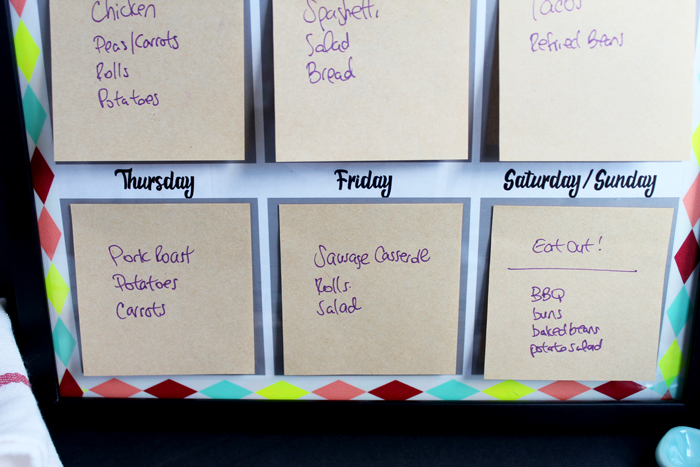 Chicken
Peas/Carrots
Rolls
Potatoes
Spaghetti
Salad
Bread
Tacos
Refried Beans
Thursday
Friday
Saturday/Sunday
Pork Roast
Potatoes
Carrots
Sausage Casserole
Rolls
Salad
Eat Out!
BBQ
buns
baked beans
potato salad